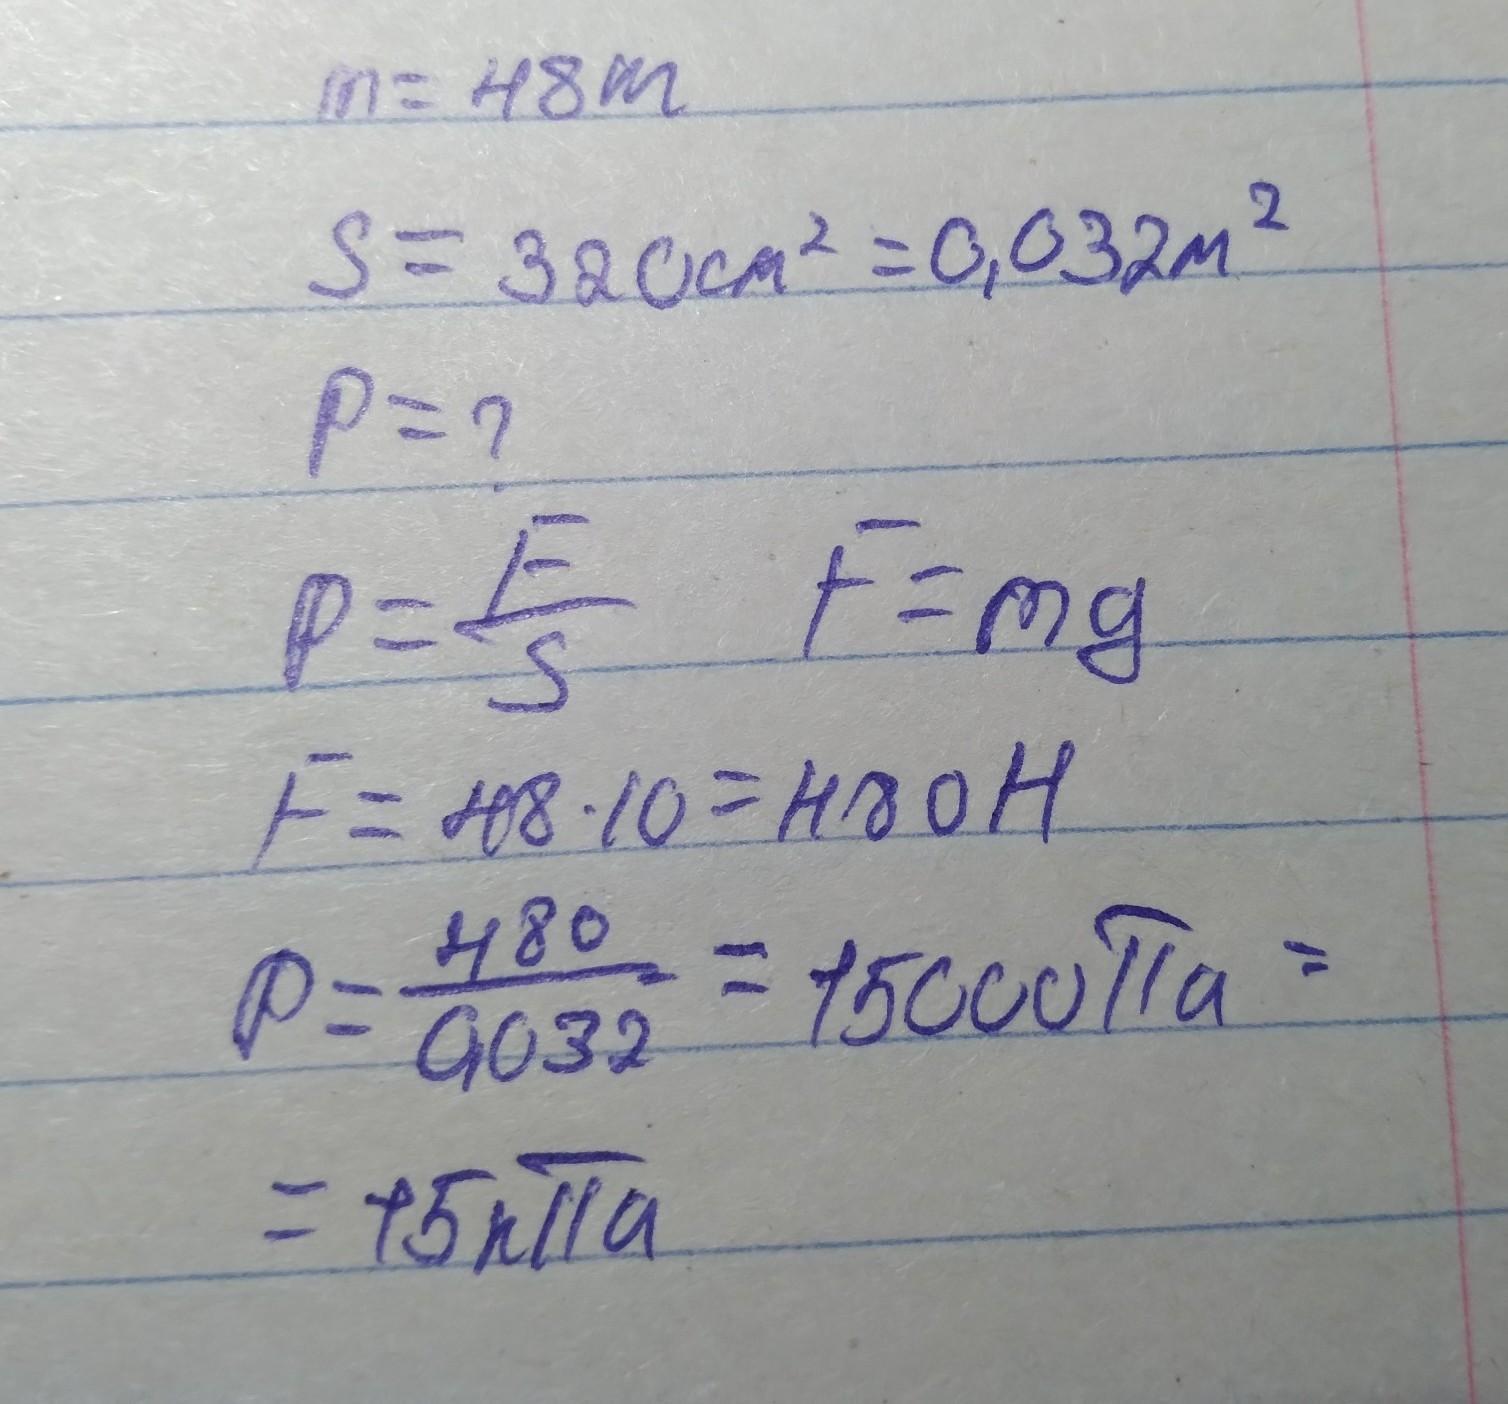 m = 48m
S = 320см² = 0,032м²
P = ?
P = F/S F = mg
F = 48·10 = 480H
P = 480/0,032 = 15000Па =
= 15кПа